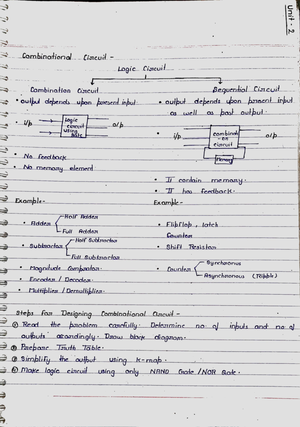 Unit - 2
Combinational Circuit -
Logic Circuit
Combination Circuit
• output depends upon present input
• i/p
logic circuit using gate
o/p
• No feedback
• No memory element
Example-
• Adder
Half Adder
Full Adder
• Subtractor
Half Subtractor
Full Subtractor
• Magnitude Comparator
• Encoder / Decoder
• Multiplier / Demultiplier
Sequential Circuit
• output depends upon present input
as well as past output.
• i/p
combination circuit
Memory
o/p
• It contain memory.
• It has feedback.
Example-
• Flipflop, latch
Counter
• Shift Resistor
• Counter
Synchronous
Asynchronous (Ripple)
Steps for Designing Combinational Circuit -
① Read the problem carefully. Determine no of inputs and no of
outputs accordingly. Draw block diagram.
② Prepare Truth Table.
③ Simplify the output using K-map.
④ Make logic circuit using only NAND Gate / NOR Gate.